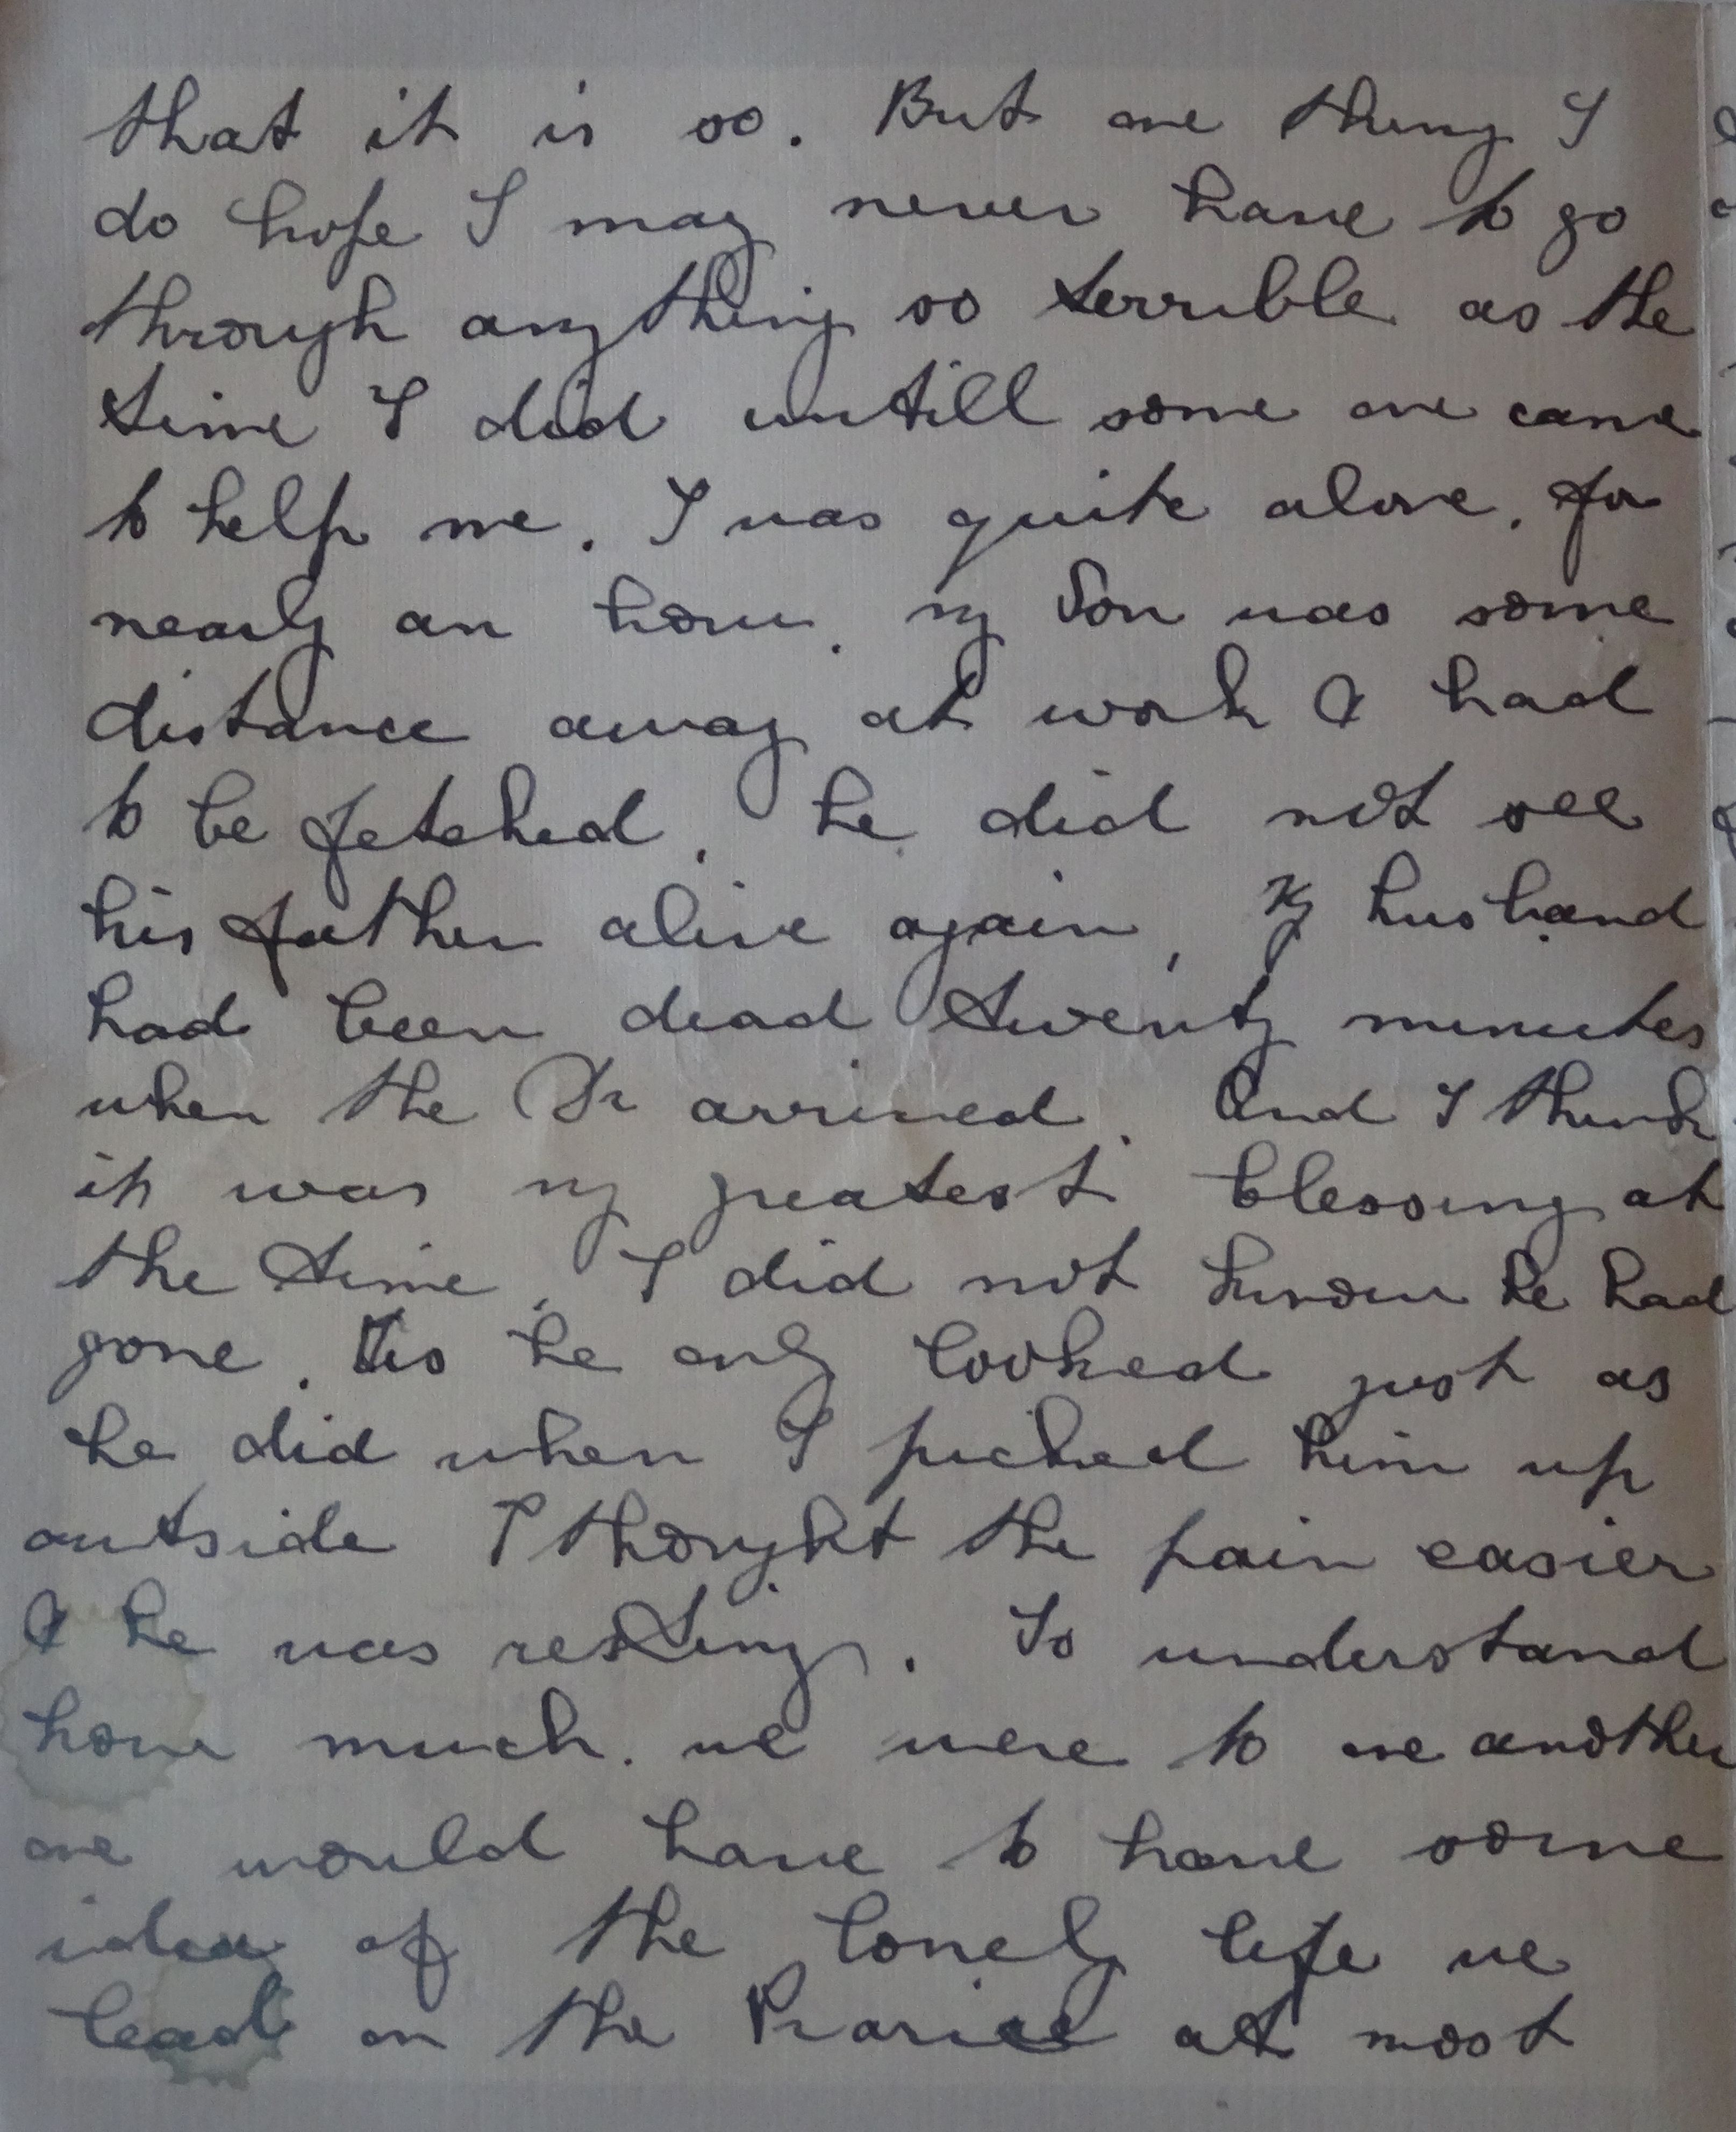 that it is so. But one thing I
do hope I may never have to go
through anything so terrible as the
time I did untill some one came
to help me. I was quite alone, for
nearly an hour. my Son was some
distance away at work & had
to be fetched. he did not see
his father alive again, My husband
had been dead twenty minutes
when the Dr arrived. And I think
it was my greatest blessing at
the time, I did not know he had
gone. as he only looked just as
he did when I picked him up
outside I thought the pain easier
& he was resting. To understand
how much. we were to one another
one would have to have some
idea of the lonely life we
lead on the Prariee at most